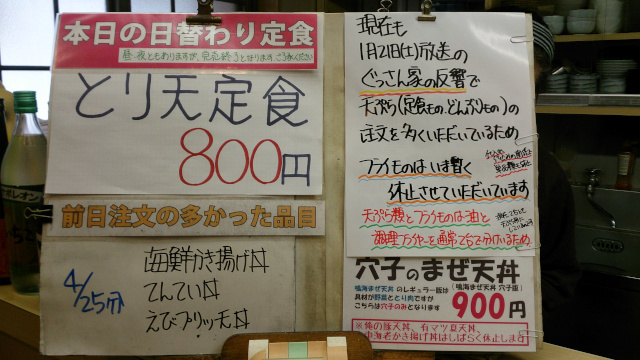 本日の日替わり定食
とり天定食
800円
前日注文の多かった品目
4/25分
海鮮かき揚げ丼
てんてい丼
えびブリッ天丼
現在も
1月21日(土)放送の
ぐっさん家の反響で
天ぷら(定食もの、どんぶりもの)の
注文を多くいただいているため
フライものはいま暫く
休止させていただいています
天ぷら類とフライものは油と
調理フライヤーを通常2台で分けているため
穴子のまぜ天丼
鳴海まぜ天丼 のレギュラー版は
具材が野菜ととり肉ですが
こちらは穴子のみとなります
(鳴海まぜ天丼 穴子版)
900円
※俺の豚天丼、有マツ夏天丼、
海老かき揚げ丼はしばらく休止します